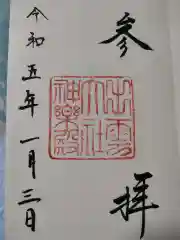 参拝
出雲
大社
神樂殿
令和五年一月三日